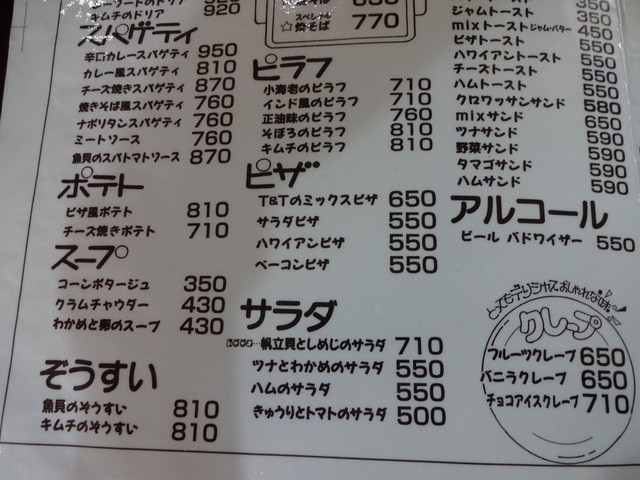 キムチのドリア 920
スパゲティ
辛口カレースパゲティ 950
カレー風スパゲティ 810
チーズ焼きスパゲティ 870
焼きそば風スパゲティ 760
ナポリタンスパゲティ 760
ミートソース 760
魚貝のスパトマトソース 870
ポテト
ピザ風ポテト 810
チーズ焼きポテト 710
スープ
コーンポタージュ 350
クラムチャウダー 430
わかめと卵のスープ 430
ぞうすい
魚貝のぞうすい 810
キムチのぞうすい 810
スペシャル
☆焼そば 770
ピラフ
小海老のピラフ 710
インド風のピラフ 710
正油味のピラフ 760
そぼろのピラフ 810
キムチのピラフ 810
ピザ
T&Tのミックスピザ 650
サラダピザ 550
ハワイアンピザ 550
ベーコンピザ 550
サラダ
帆立貝としめじのサラダ 710
ツナとわかめのサラダ 550
ハムのサラダ 550
きゅうりとトマトのサラダ 500
ジャムトースト 350
mixトースト ジャム・バター 450
ピザトースト 550
ハワイアントースト 550
チーズトースト 550
ハムトースト 550
クロワッサンサンド 580
mixサンド 650
ツナサンド 590
野菜サンド 590
タマゴサンド 590
ハムサンド 590
アルコール
ビール バドワイザー 550
とってもデリシャスでおしゃれな味
クレープ
フルーツクレープ 650
バニラクレープ 650
チョコアイスクレープ 710